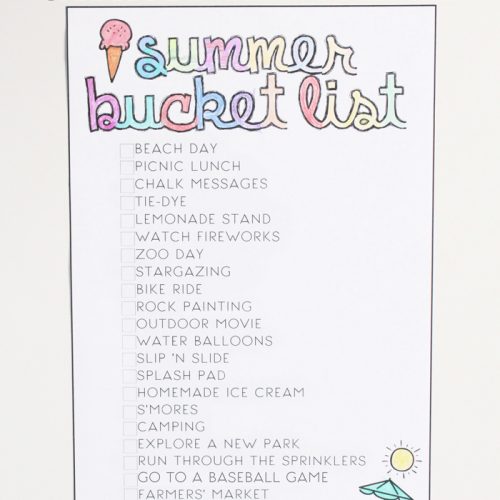 summer
bucket list
BEACH DAY
PICNIC LUNCH
CHALK MESSAGES
TIE-DYE
LEMONADE STAND
WATCH FIREWORKS
ZOO DAY
STARGAZING
BIKE RIDE
ROCK PAINTING
OUTDOOR MOVIE
WATER BALLOONS
SLIP 'N SLIDE
SPLASH PAD
HOMEMADE ICE CREAM
S'MORES
CAMPING
EXPLORE A NEW PARK
RUN THROUGH THE SPRINKLERS
GO TO A BASEBALL GAME
FARMERS' MARKET